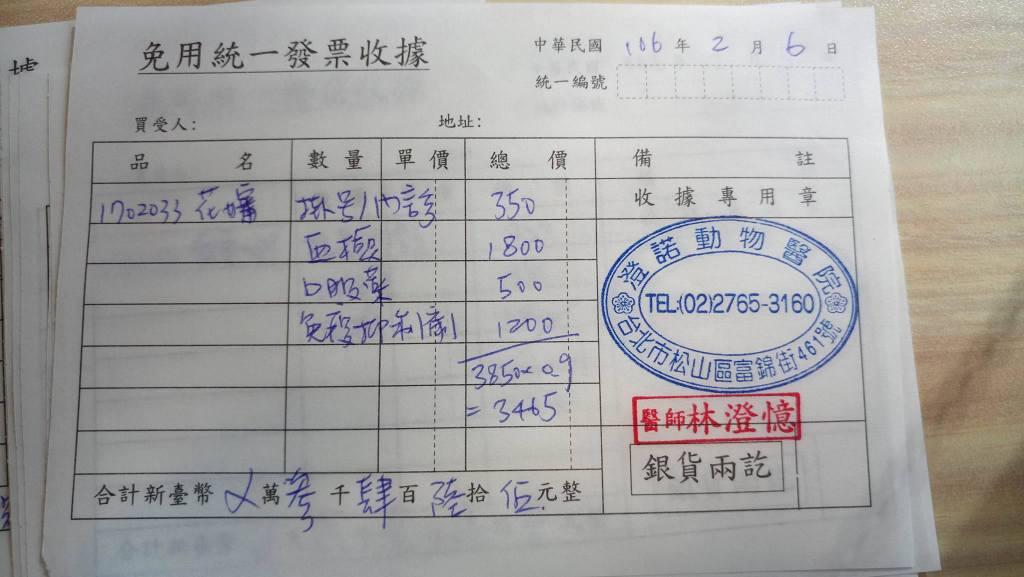 免用統一發票收據
中華民國 106 年 2 月 6 日
統一編號
買受人: 地址:
品名 數量 單價 總價 備註
1702033 花 掛號/內診 350 收據專用章
血檢 1800
口服藥 500
免疫抑制劑 1200
3850×0.9
=3465
澄諾動物醫院
TEL:(02)2765-3160
台北市松山區富錦街461號
醫師林澄憶
銀貨兩訖
合計新臺幣 ㄨ 萬 參 千 肆 百 陸 拾 伍 元整